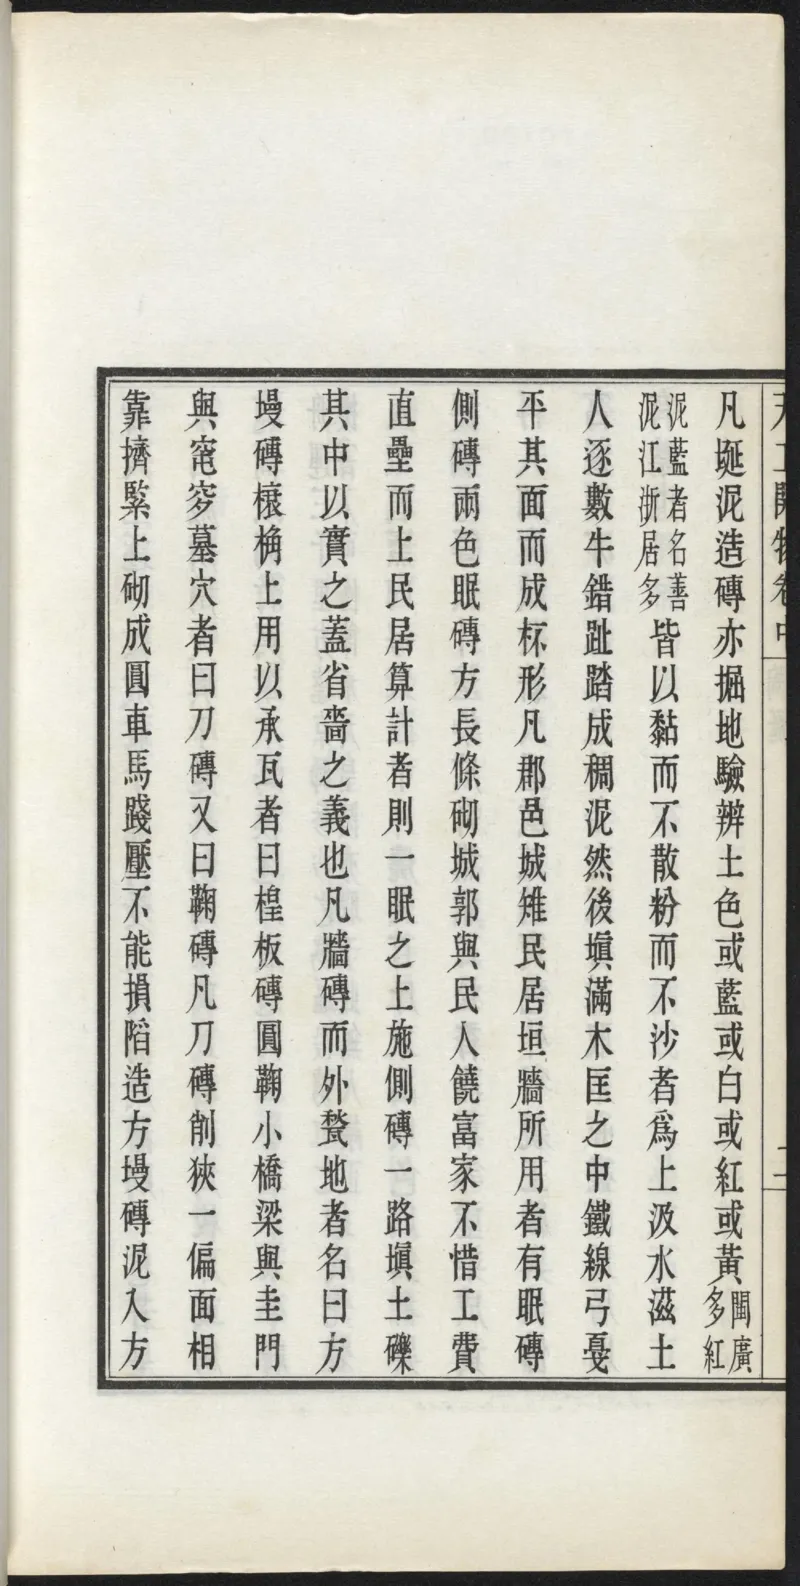 天工開物卷中 二
凡埏泥造磚亦掘地驗辨土色或藍或白或紅或黃閩廣多紅
泥藍者名善泥江浙居多皆以黏而不散粉而不沙者爲上汲水滋土
人逐數牛錯趾踏成稠泥然後塡滿木匡之中鐵線弓戛
平其面而成杯形凡郡邑城雉民居垣牆所用者有眠磚
側磚兩色眠磚方長條砌城郭與民人饒富家不惜工費
直壘而上民居算計者則一眠之上施側磚一路塡土礫
其中以實之蓋省嗇之義也凡牆磚而外甃地者名曰方
墁磚榱桷上用以承瓦者曰楻板磚圓鞠小橋梁與圭門
與窀穸墓穴者曰刀磚又曰鞠磚凡刀磚削狹一偏面相
靠擠緊上砌成圓車馬踐壓不能損陷造方墁磚泥入方